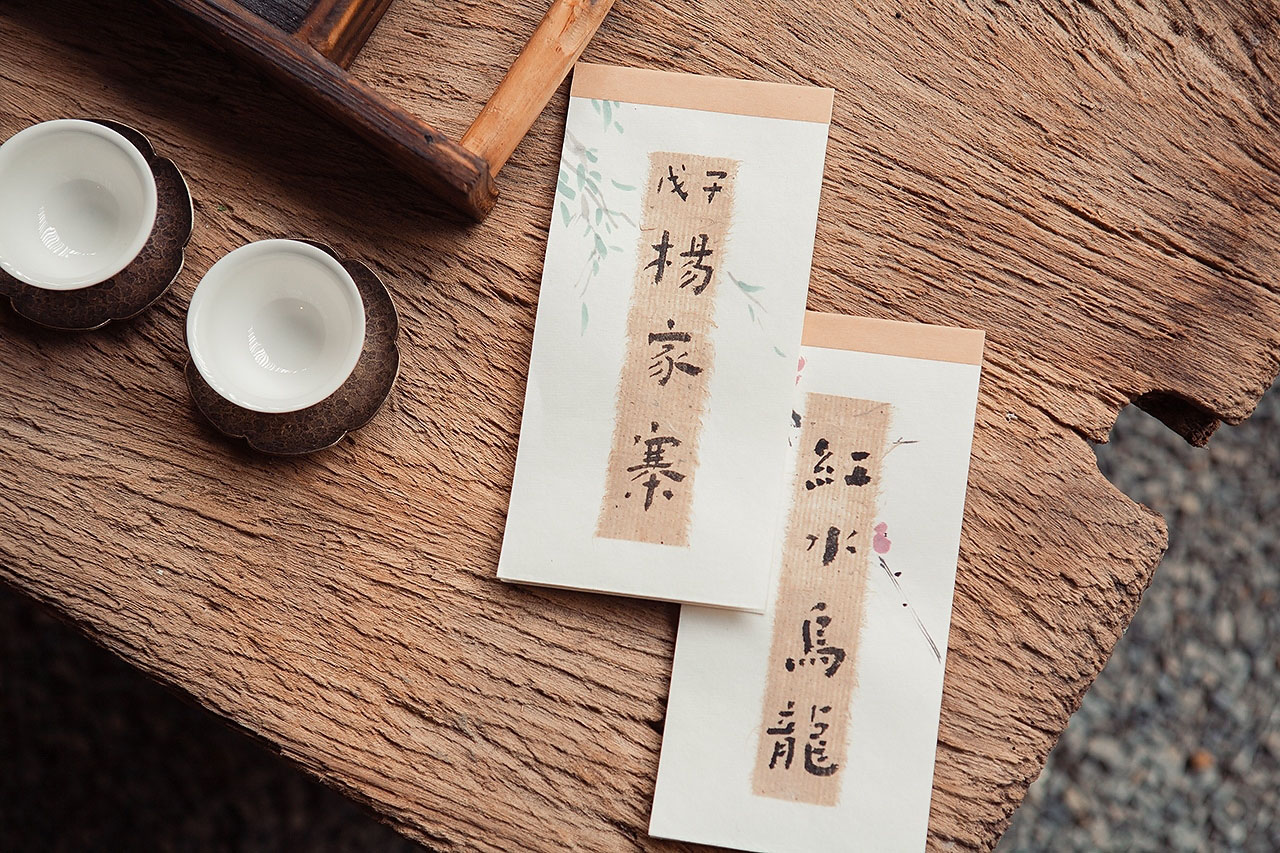 戊子
楊家寨
紅水烏龍